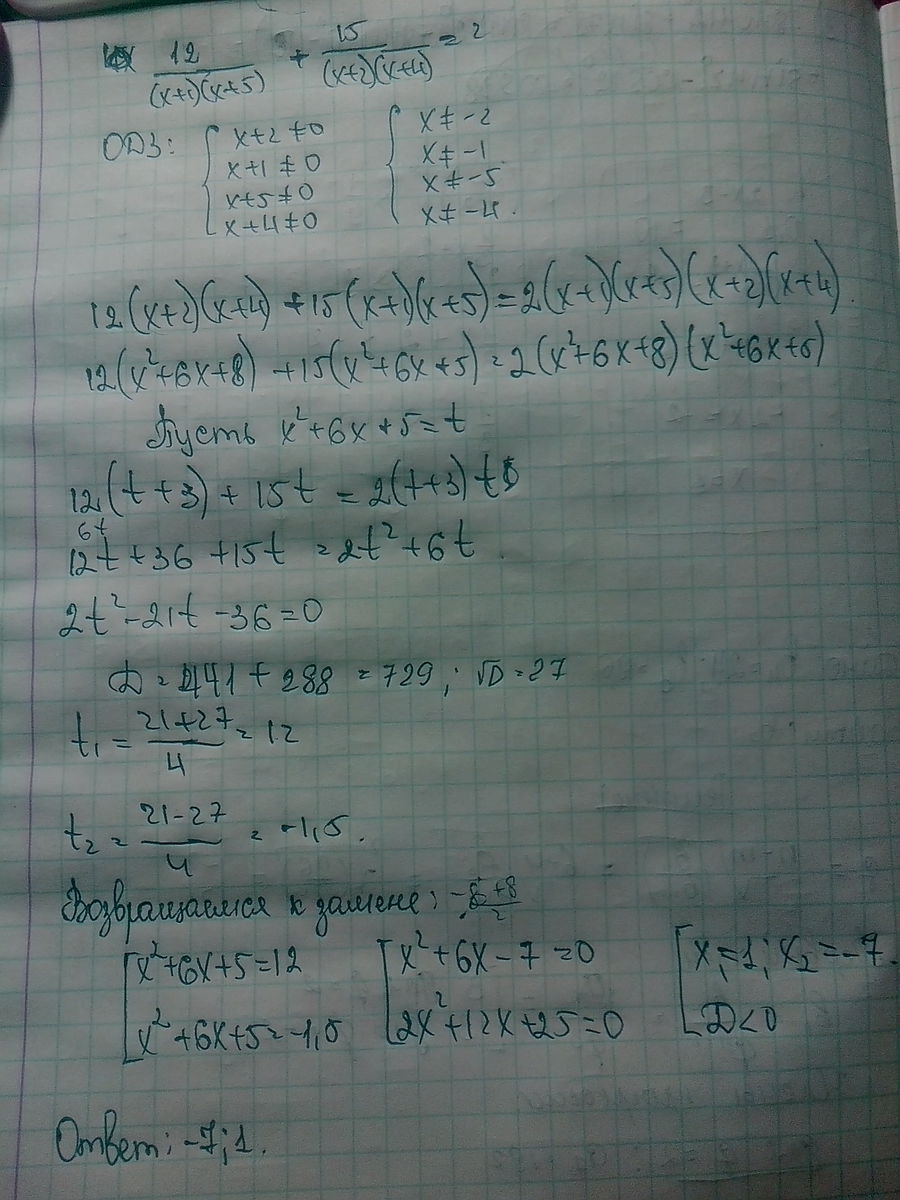 12/((x+1)(x+5)) + 15/((x+2)(x+4)) = 2
ОДЗ: { x+2≠0 { x≠-2
x+1≠0 x≠-1
x+5≠0 x≠-5
x+4≠0 x≠-4.
12(x+2)(x+4)+15(x+1)(x+5)=2(x+1)(x+5)(x+2)(x+4).
12(x²+6x+8)+15(x²+6x+5)=2(x²+6x+8)(x²+6x+5)
Пусть x²+6x+5=t
12(t+3)+15t=2(t+3)t
6t
12t+36+15t=2t²+6t.
2t²-21t-36=0
D=441+288=729; √D=27
t₁=(21+27)/4=12
t₂=(21-27)/4=-1,5.
Возвращаемся к замене: (-6+8)/2
[ x²+6x+5=12 [ x²+6x-7=0 [ x₁=1; x₂=-7.
x²+6x+5=-1,5 2x²+12x+25=0 D<0
Ответ: -7; 1.